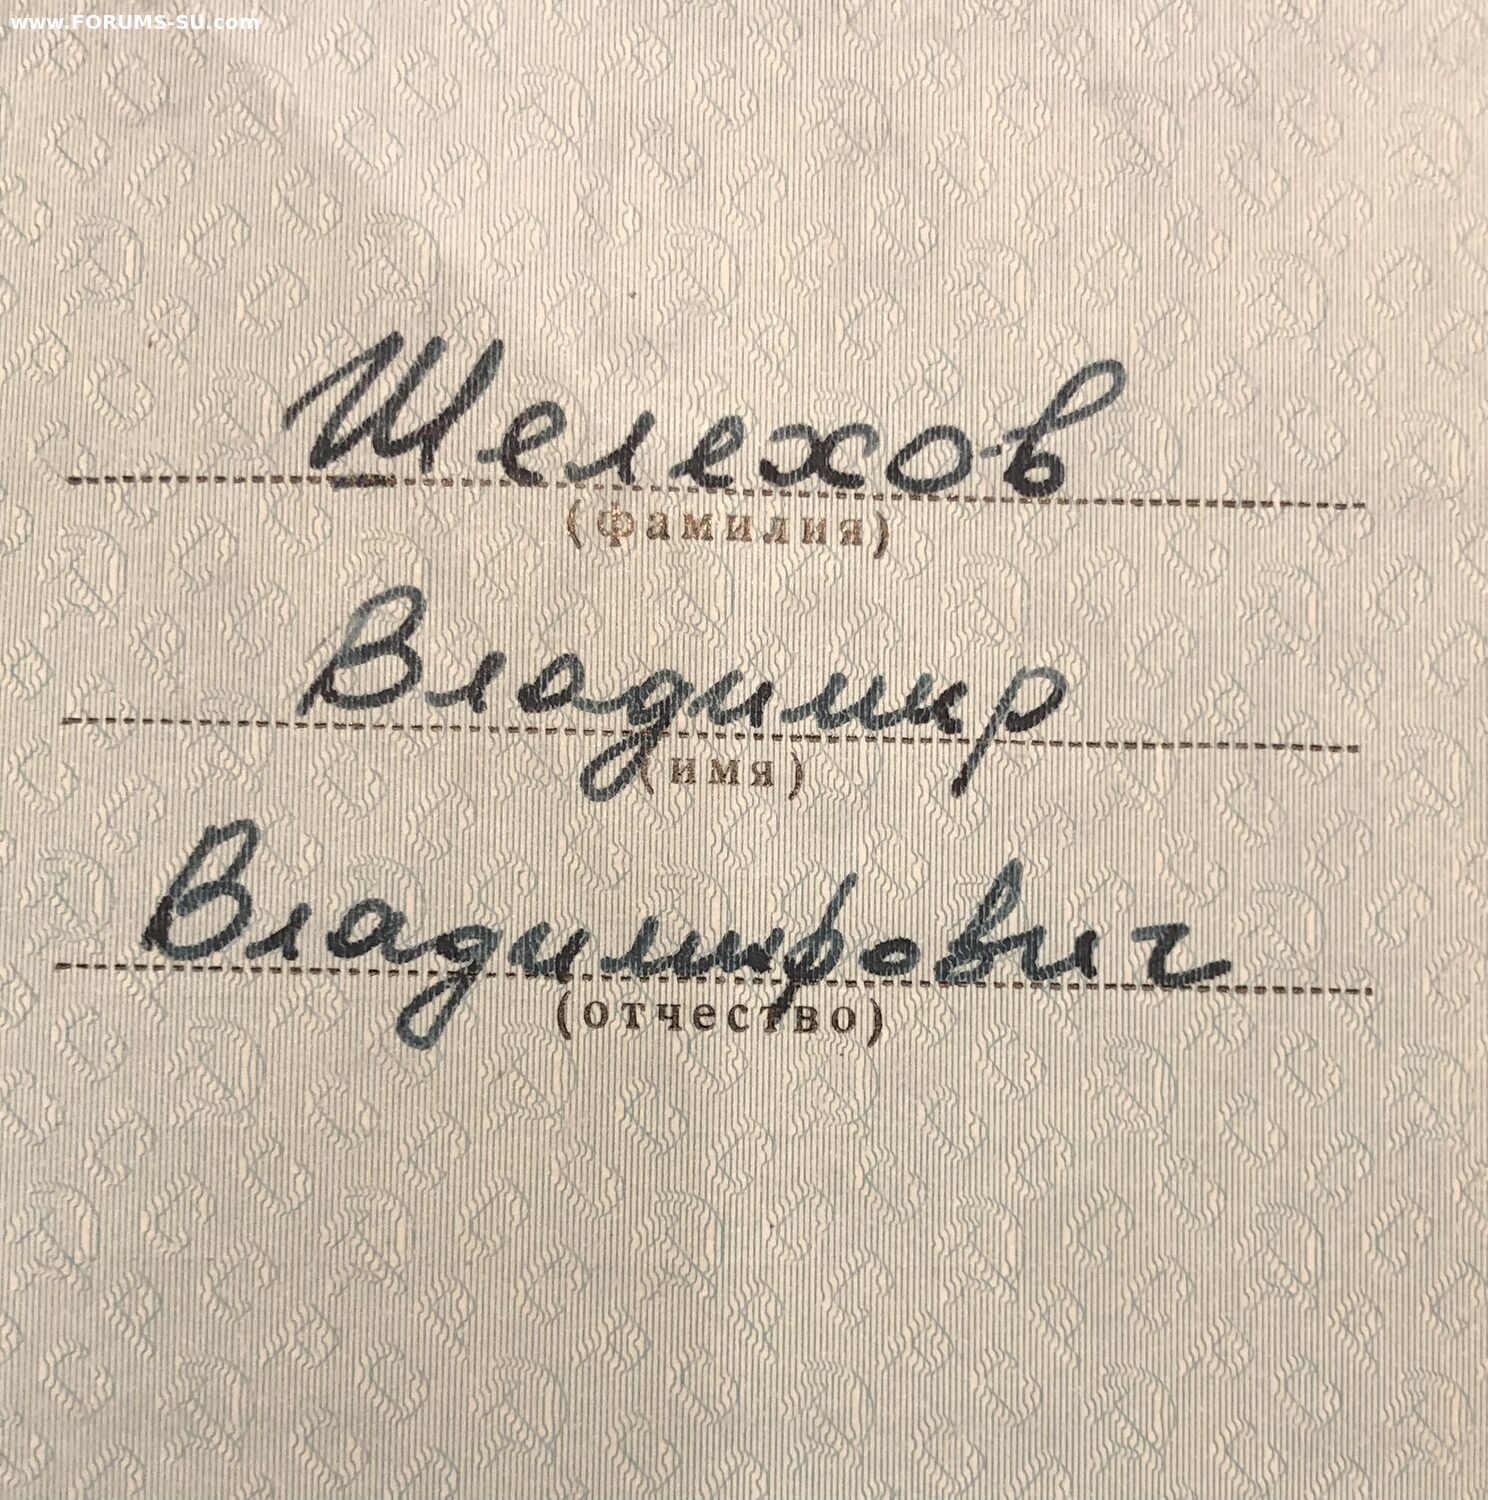 www.FORUMS-SU.com
Шелехов
(фамилия)
Владимир
(имя)
Владимирович
(отчество)